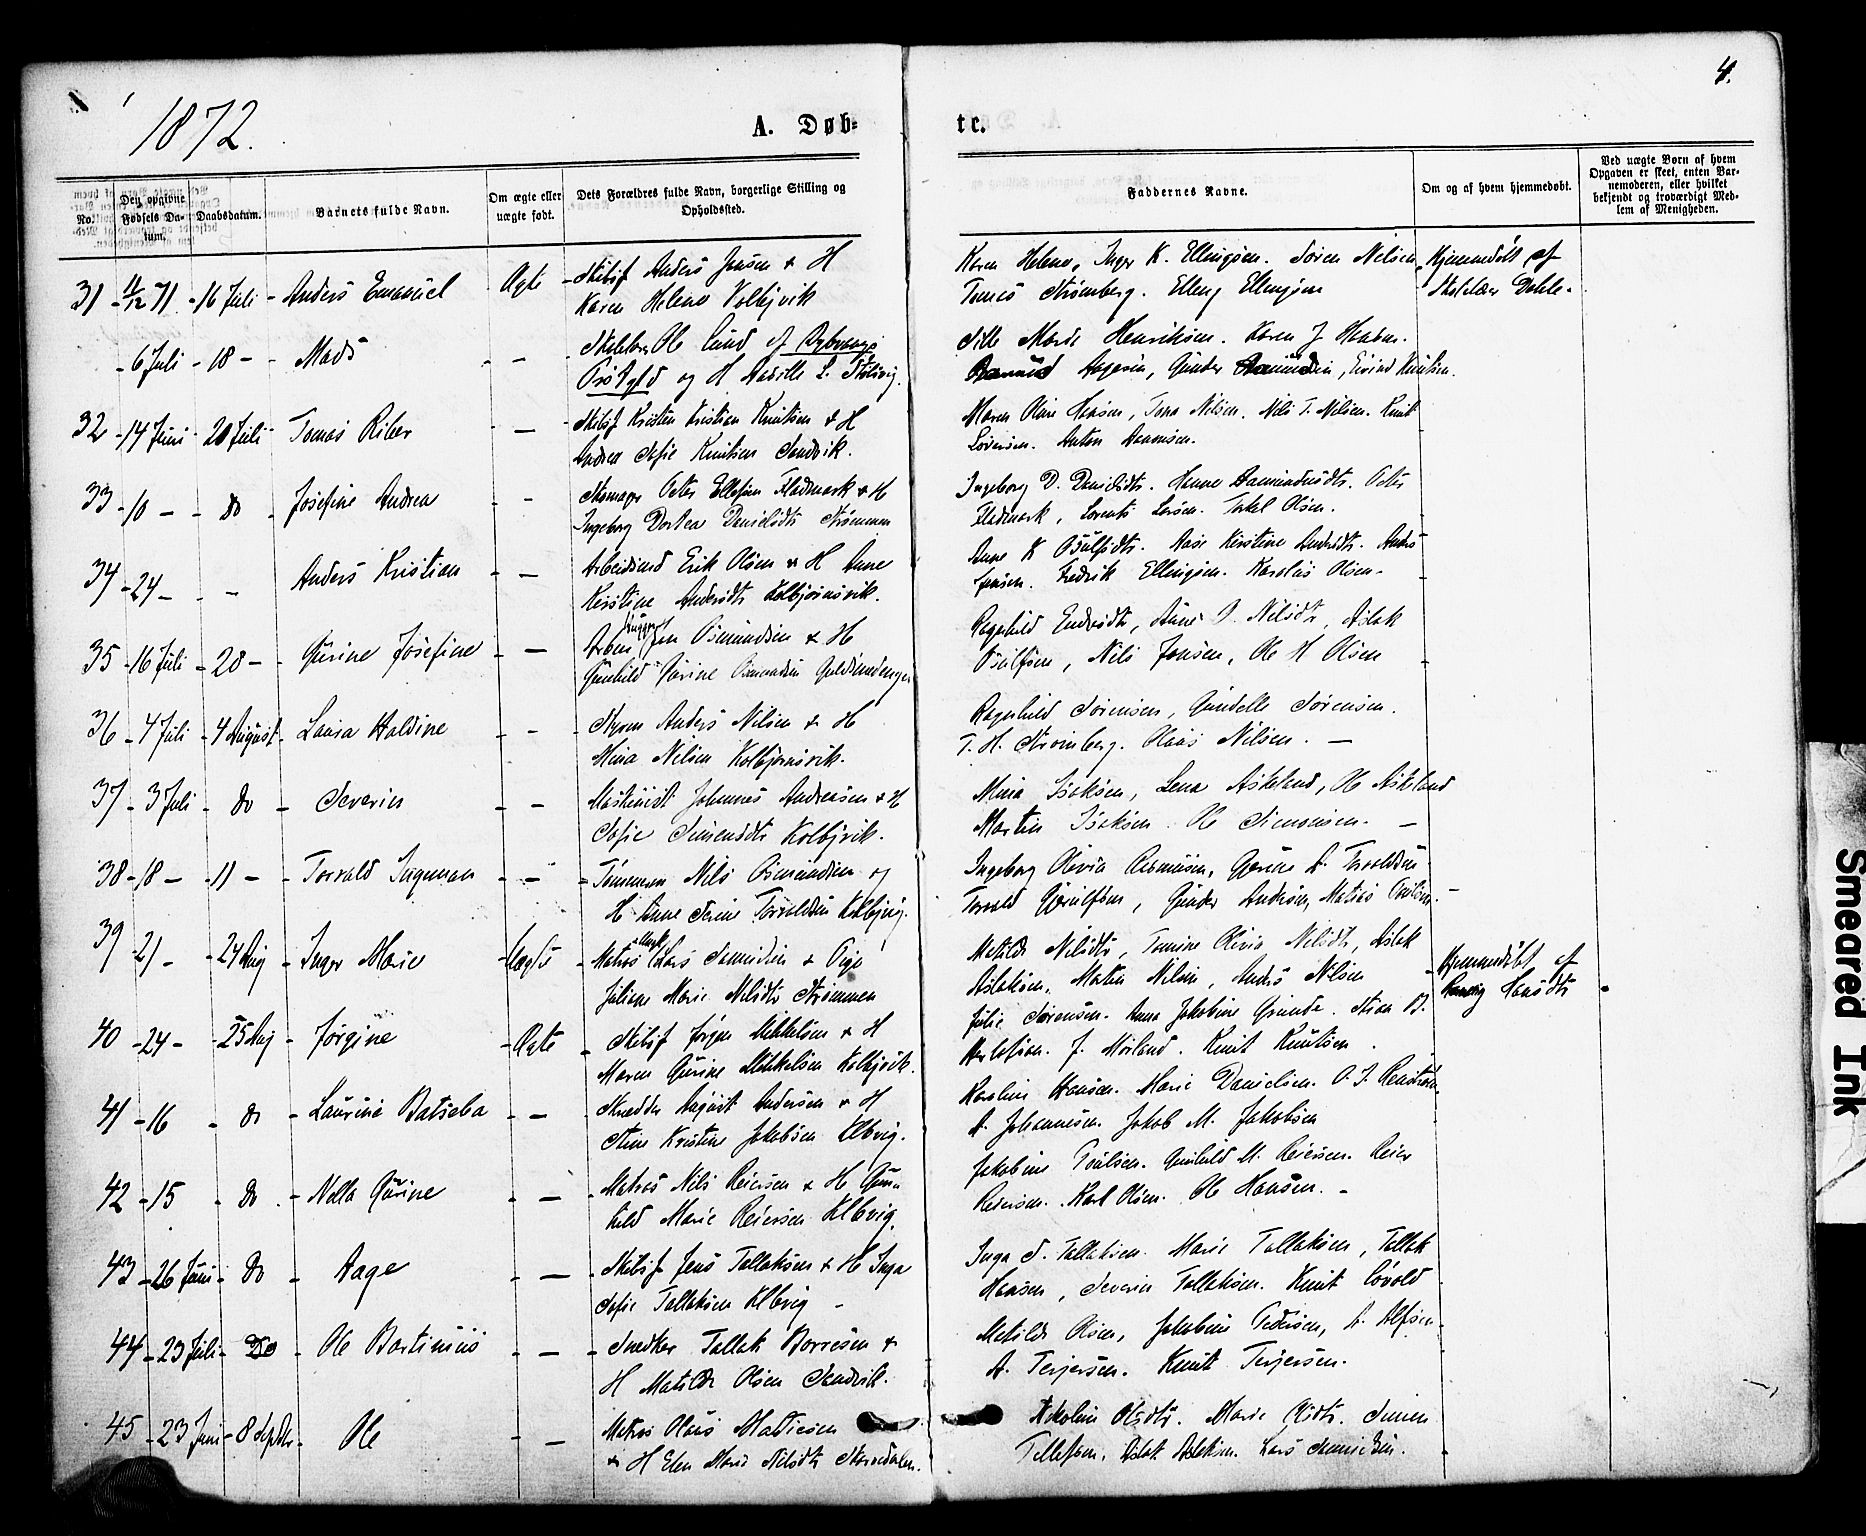 1872.
A. Døb-
te.
4.
No.
Den opgivne Fødsels Datum.
Daabsdatum.
Barnets fulde Navn.
Om ægte eller uægte født.
Dets Forældres fulde Navn, borgerlige Stilling og Opholdssted.
Faddernes Navne.
Om og af hvem hjemmedøbt.
Ved uægte Børn af hvem Opgaven er skeet, enten Barnemoderen, eller hvilket bekjendt og troværdigt Medlem af Menigheden.
31 - 71 - 16 Juli - Anders Emanuel - Ægte - Skibsf Anders Jensen & H
Karen Helene Kolbjvik
Karen Helene, Inger K. Ellingsen. Sören Nilsen,
Tomas Strömberg. Elling Ellingsen
Hjemmedöbt af
Skolelær Dahle.
- 6 Juli - 18 - Mads - - Ole Lund af
og H
Henriksen. Karen J Hansen.
Gunder Eivind Knutsen.
32 - 14 Juni - 20 Juli - Tomas Riber - - Skibsf Kristen Kristian Knutsen & H
Andrea Sofie Knutsen Sandvik.
Maren Oline Hansen, Tona Nilsen. Nils T. Nilsen. Knut
Anton
33 - 10 - - do - Josefine Andrea - - Skomager Peter Ellefsen Fladmark & H
Ingeborg Dortea Danielsdtr Strömmen
Ingeborg D. Danielsdtr. Hanne Aamundsdtr. Peter
Fladmark, Lorents Larsen. Terkel Olsen.
34 - 24 - - - Anders Kristian - - Arbeidsmd Erik Olsen & H Anne
Kirstine Andersdtr Kolbjörnsvik.
Anne K Osulfsdtr. Aase Kirstine Andersdtr. Anders
Jensen. Fredrik Ellingsen. Karolius Olsen.
35 - 16 Juli - 28 - - Gurine Josefine - - Jens Osmundsen & H
Gunhild Gurine Osmundsen
Ragnhild Nilsdtr, Aslak
Osulfsen, Nils Jensen, Ole H Olsen
36 - 4 Juli - 4 August - Laura Haldine - - Styrm Anders Nilsen & H
Mina Nilsen Kolbjörnsvik.
Ragnhild Sörensen, Gundelle Sörensen.
T. H. Strömberg. Olaus Nilsen. -
37 - 3 Juli - do - Severin - - Maskinist Johannes Andreasen & H
Sofie Simensdtr Kolbjvik.
Mina Isaksen, Lena Askeland, Ole Askeland
Martin Isaksen. Ole Simonsen. -
38 - 18 - - 11 - - Torvald Ingeman - - Tömmerm Nils Osmundsen og
H Anne Serine Torvaldsen Kolbjvig.
Ingeborg Olivia Rasmussen, Gurine A. Torvaldsen
Torvald Gjerulfsen, Gunder Andersen, Matias
39 - 21 - - 24 Aug - Inger Marie - Uægte - Matros Lars Samuelsen & Pige
Juliane Marie Nilsdtr Strömmen
Matilde Nilsdtr, Tomine Olivia Nilsdtr, Aslak
Aslaksen, Morten Nilsen, Anders Nilsen
Hjemmedöbt af
Hansdtr
40 - 24 - - 25 Aug - Jörgine - Ægte - Skibsf Jörgen Mikkelsen & H
Maren Gurine Mikkelsen Kolbjvik.
Julie Sörensen. Anna Jakobine Grunde. Stian B.
Herlofsen. J. Mörland. Knut Knutsen.
41 - 16 - do - Laurine Batseba - - Skrædder August Andersen & H
Stine Kristine Jakobsen Klbvig.
Karoline Hansen. Marie Danielsen. O. J.
A. Johannesen. Jakob M. Jakobsen
42 - 15 - do - Nella Gurine - - Matros Nils Reiersen & H Gun-
hild Marie Reiersen Klbvig.
Jakobine Poulsen. Gunhild M. Reiersen. Reier
Reiersen. Karl Olsen. Ole Hansen. -
43 - 26 Juni - do - Aage - - Skibsf Jens Tallaksen & H Inga
Sofie Tallaksen Klbvig -
Inga S. Tallaksen. Marie Tallaksen, Tallak
Hansen, Severin Tallaksen. Knut Lövold
44 - 23 Juli - do - Ole Bartinius - - Snedker Tallak Borresen &
H Matilde Olsen Sandvik.
Matilde Olsen, Jakobine Pedersen, A. Alfsen.
A. Terjersen. Knut Terjersen.
45 - 23 Juni - 8 Septbr - Ole - - Matros Olaus Mattiesen
& H Elen Marie Nilsdtr
Nikoline Olsdtr. Marie Olsdtr. Simen
Tellefsen. Aslak Aslaksen. Lars Samuelsen.
Smeared Ink